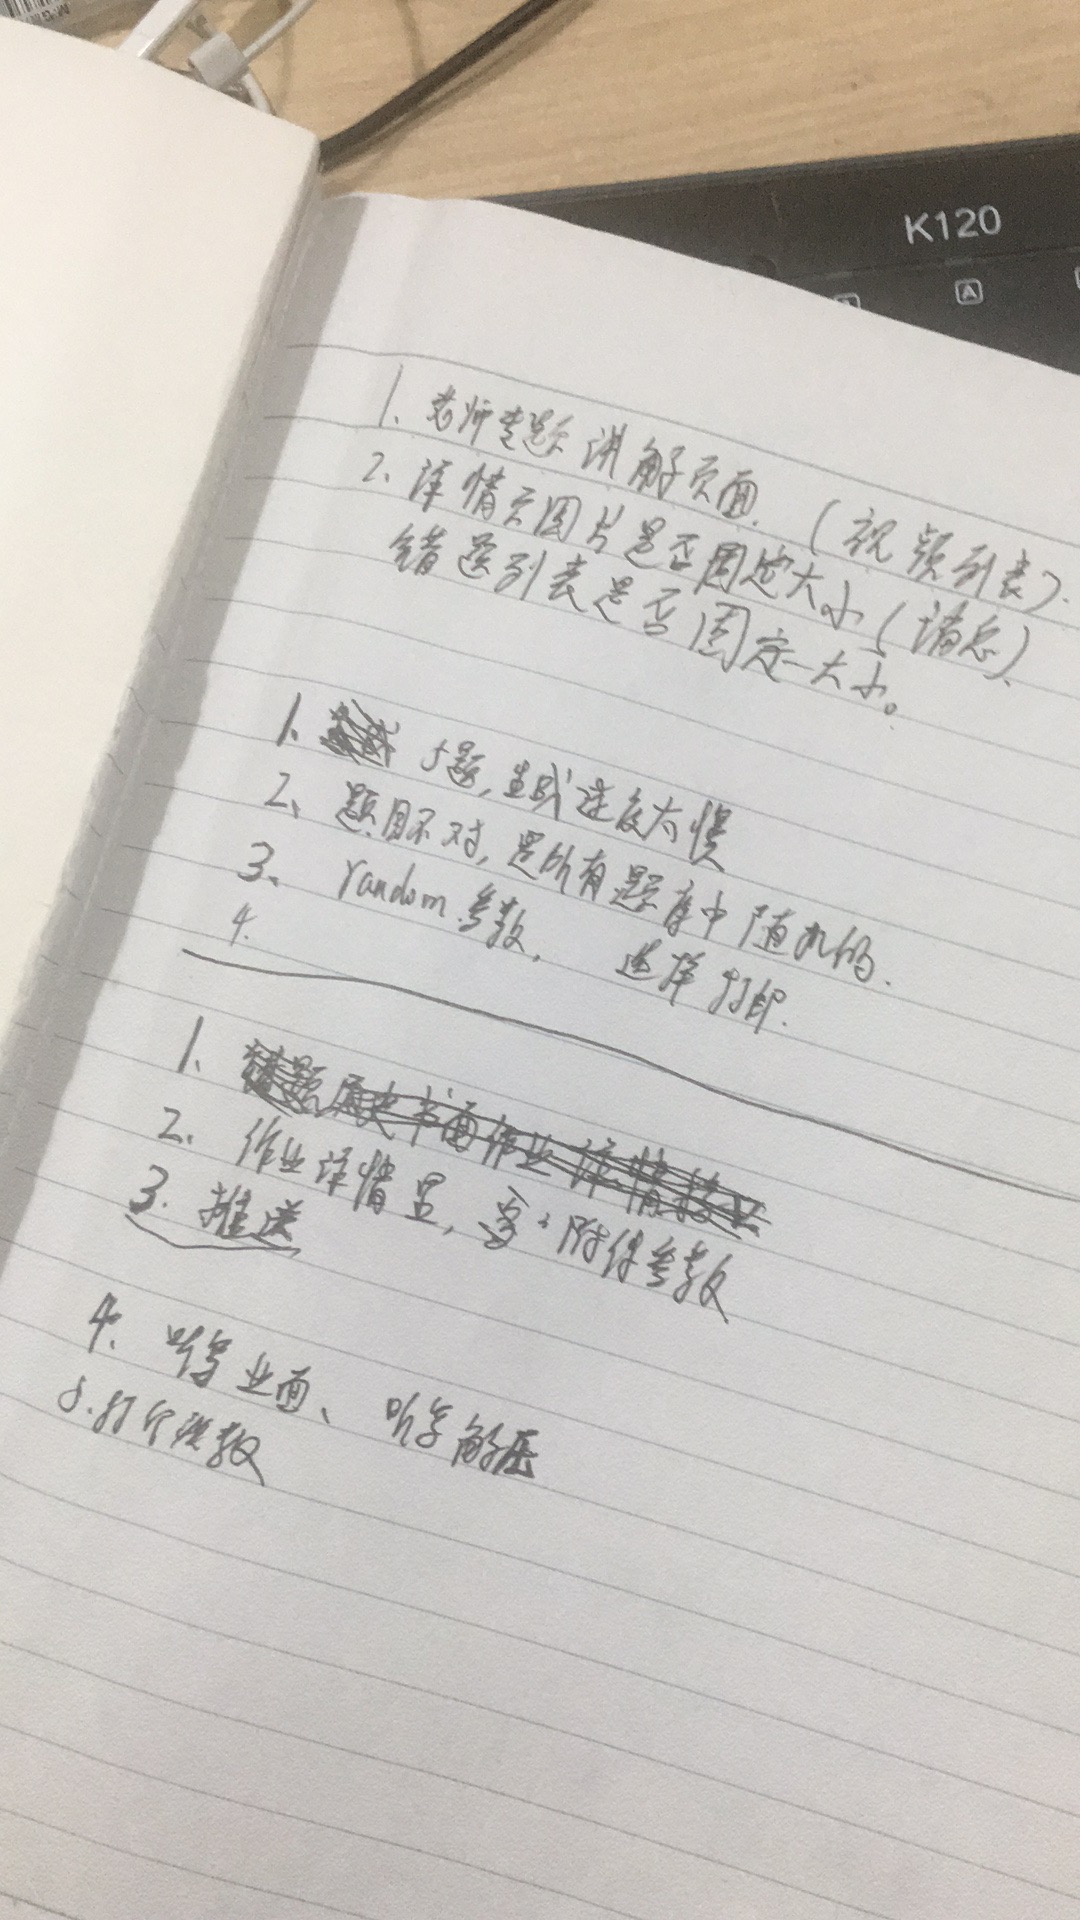 K120
A
1. 老师专题讲解页面. (视频列表).
2. 详情页图片是否固定大小(请总).
错题列表是否固定大小。
1. 5题,生成速度太慢
2、题目不对,是所有题库中随机的.
3、random 参数, 选择打印.
4.
1、错题历史书面作业详情接口
2、作业详情里, 附件参数
3. 推送
4. 听写业面、听写解压
5.打个